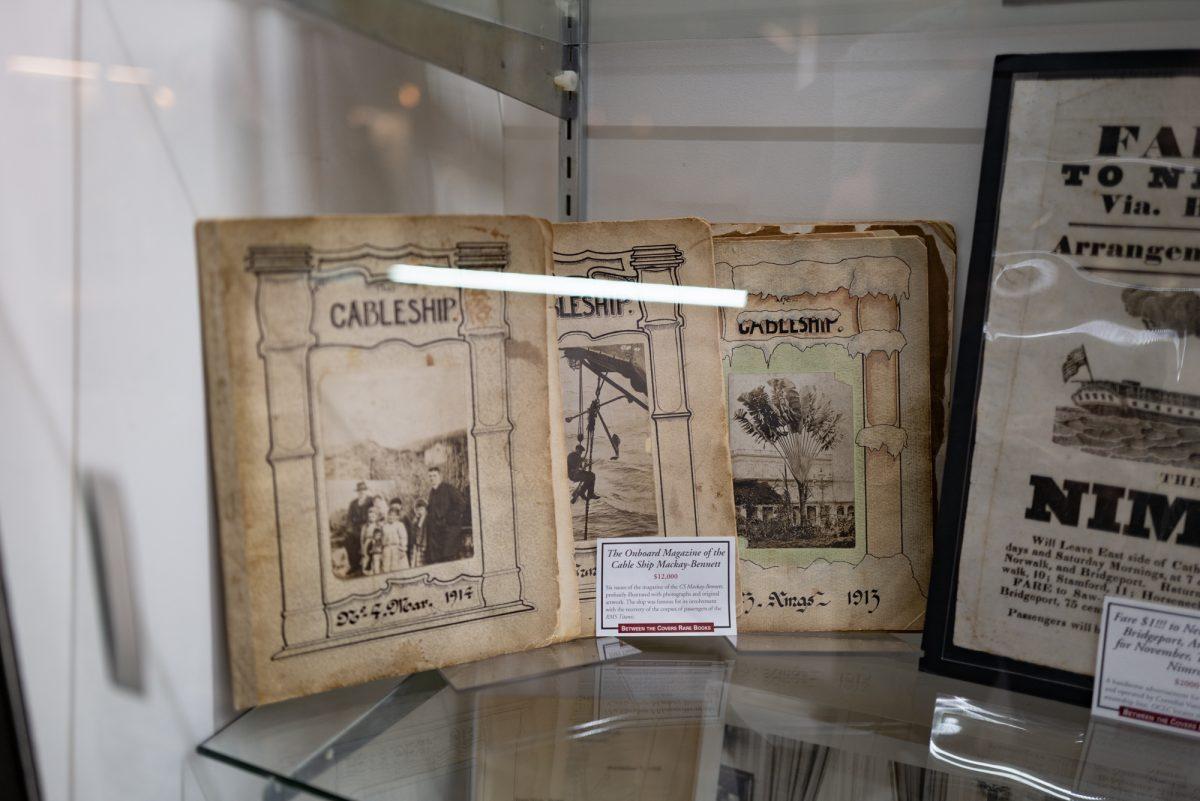 CABLESHIP.
No 4. Mar. 1914
CABLESHIP.
CABLESHIP.
3. Xmas 1913
The Onboard Magazine of the
Cable Ship Mackay-Bennett
$12,000
Six issues of the magazine of the CS Mackay-Bennett,
profusely illustrated with photographs and original
artwork. The ship was famous for its involvement
with the recovery of the corpses of passengers of the
RMS Titanic.
BETWEEN THE COVERS RARE BOOKS
FA
TO N
Via.
Arrangem
THE
NIM
Will Leave East side of Cath
days and Saturday Mornings, at 7
Norwalk, and Bridgeport. Return
walk, 10; Stamford, 11; Horsene
FARE to Saw
Bridgeport, 75 cen
Passengers will b
Fare $1!!! to N
Bridgeport,
for November,
Nimr
$2000
A handsome advertisement
and operated by
BETWEEN THE COVERS